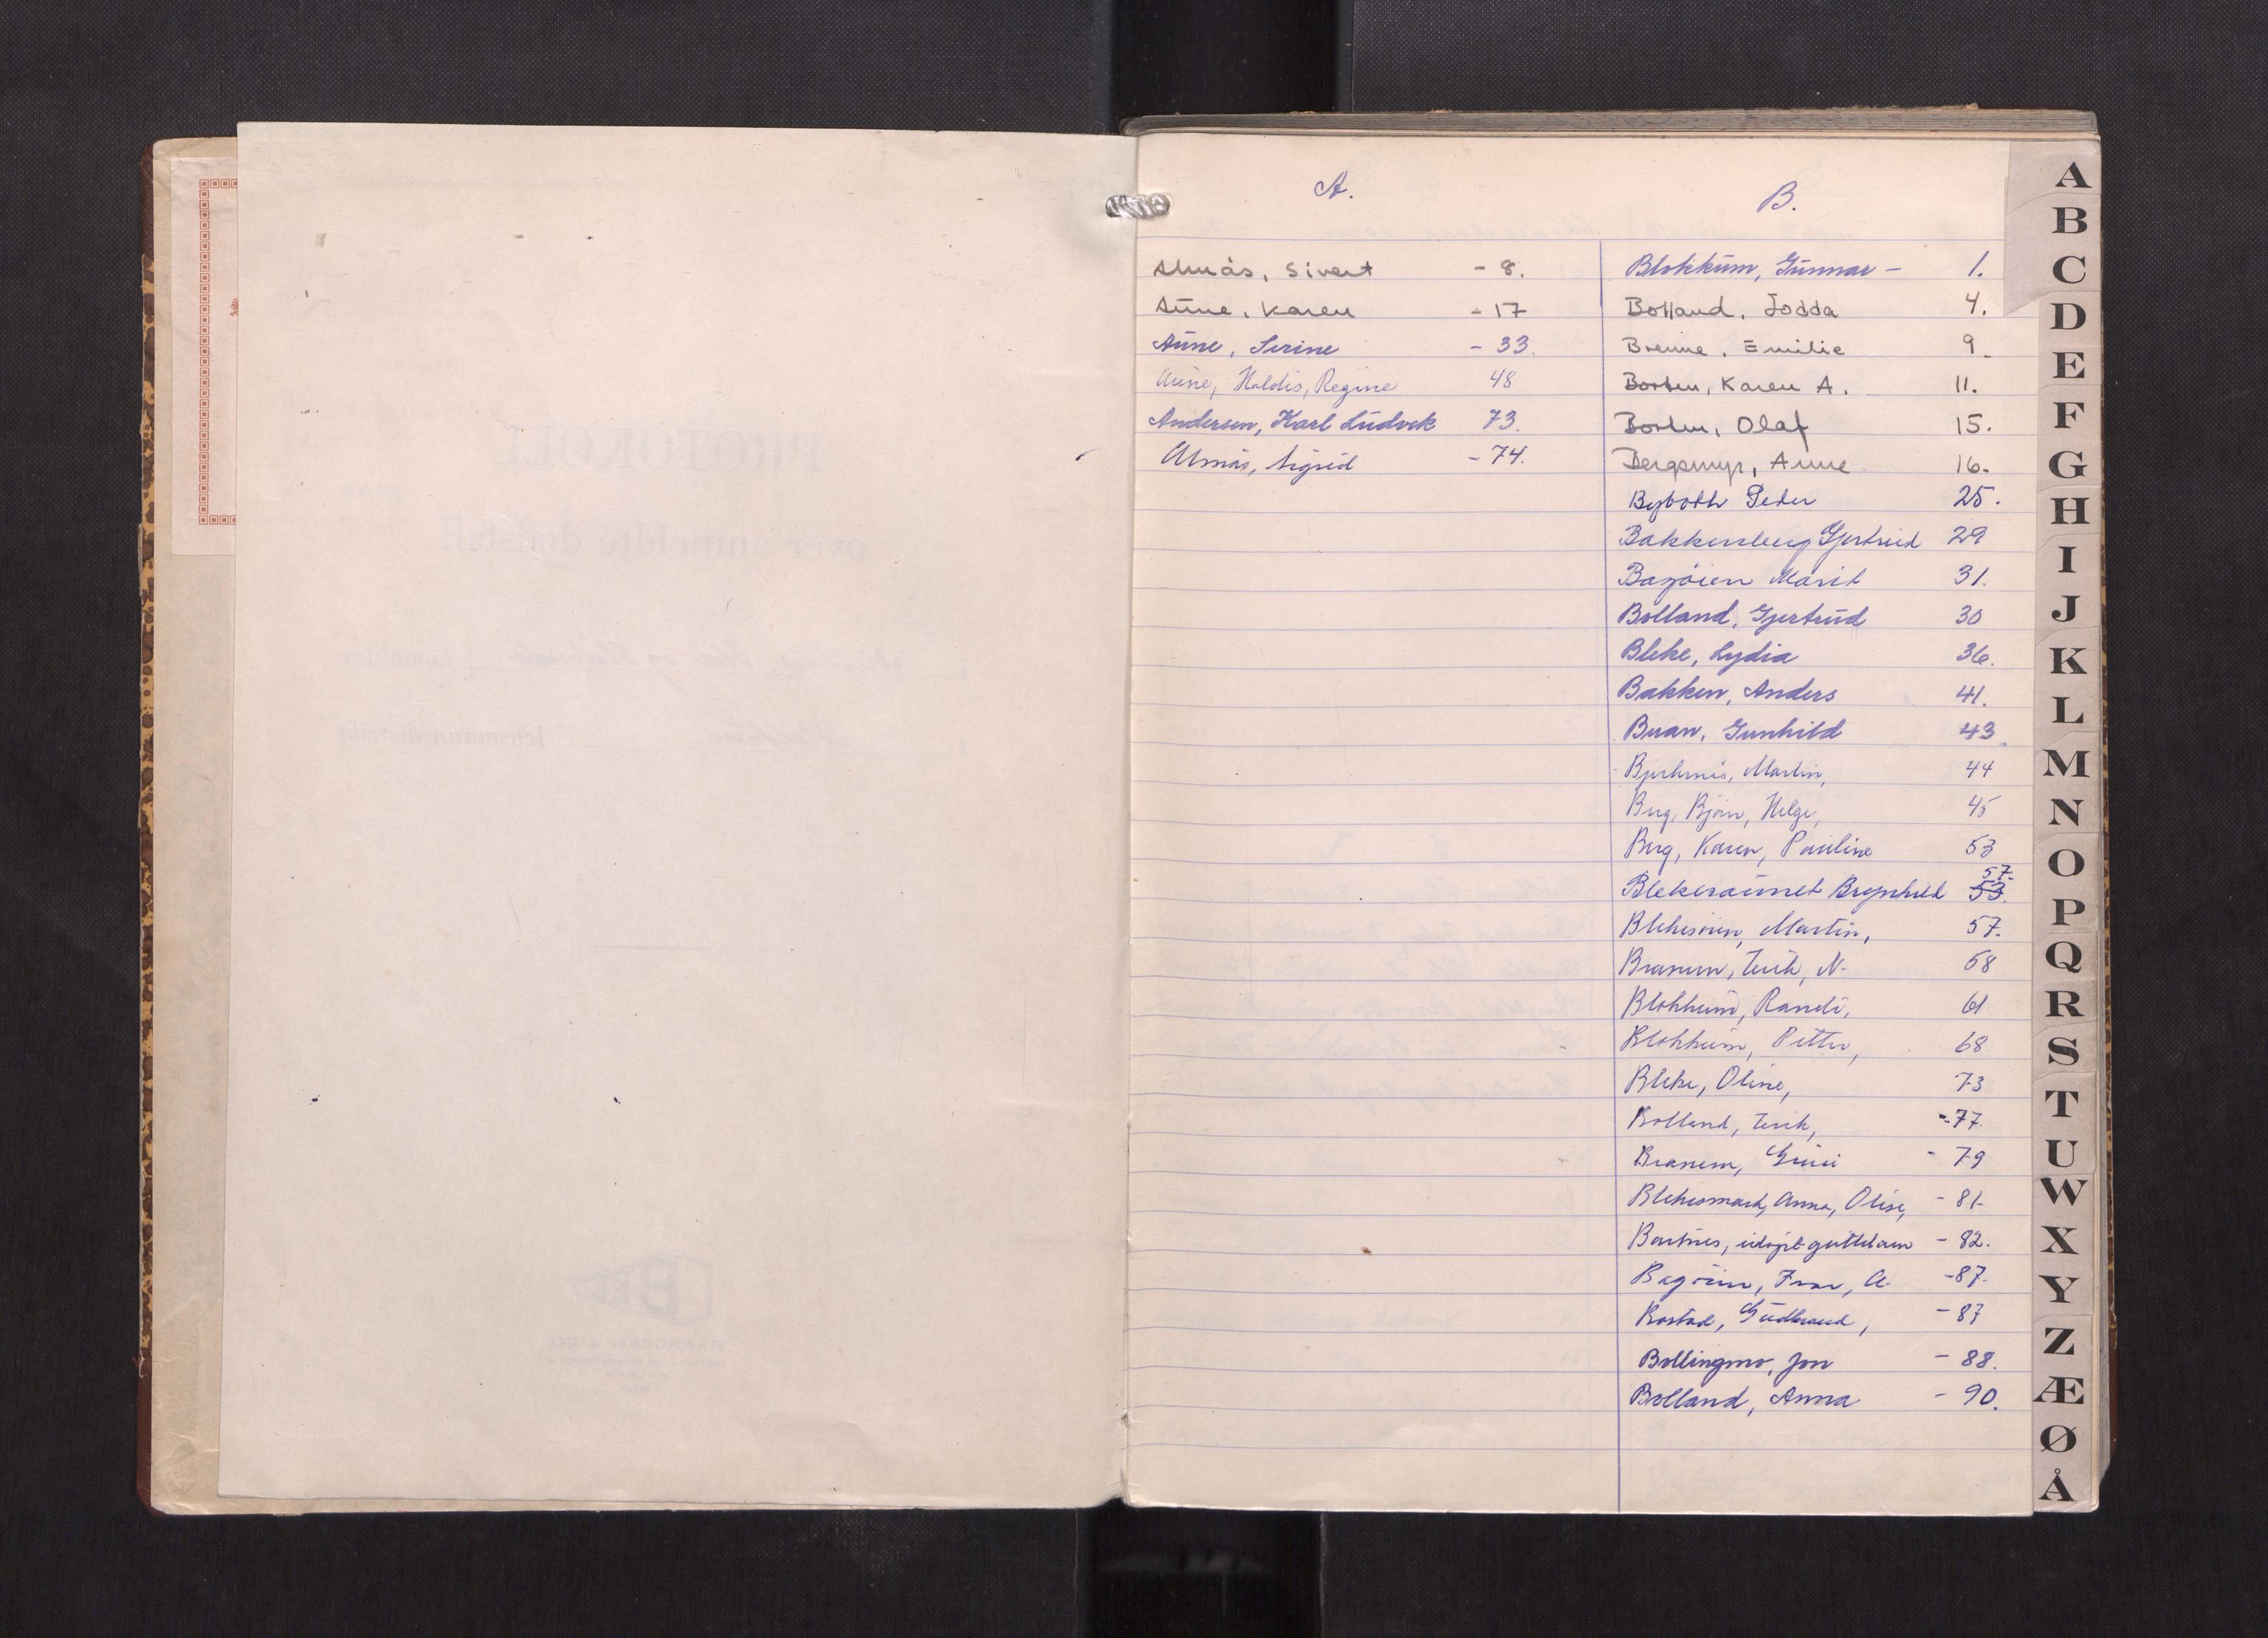 A.
Almås, Sivert - 8.
Aune, Karen - 17
Aune, Serine - 33.
Aune, Haldis, Regine 48
Andersen, Karl Ludvik 73.
Almås, Sigrid - 74.
B.
Blokkum, Gunnar - 1.
Bolland, Jodda 4.
Brenne, Emilie 9.
Borten, Karen A. 11.
Borten, Olaf 15.
Bergsmyr, Anne 16.
Byboth Peder 25.
Bakkensberg Gjertrud 29
Bagøien Marit 31.
Bolland, Gjertrud 30
Bleke, Lydia 36.
Bakken, Anders 41.
Buan, Gunhild 43.
Martin, 44
Berg, Bjørn, Helge, 45
Berg, Karen, Pauline 53
Blekesaunet Brynhild 57. 53.
Blekesøien, Martin, 57.
Branem, Eirik, N. 58
Blokkum, Randi, 61
Blokkum, Petter, 68
Bleke, Oline, 73
Bolland, Eirik, - 77.
Branem, Guri - 79
Blekesmark, Anna, Olise, - 81
Bortnes, udøpt guttebarn - 82.
Bagøien, Ivar, A. - 87.
Bostad, Gudbrand, - 87
Bollingmo, Jon - 88.
Bolland, Anna - 90.
A
B
C
D
E
F
G
H
I
J
K
L
M
N
O
P
Q
R
S
T
U
W
X
Y
Z
Æ
Ø
Å